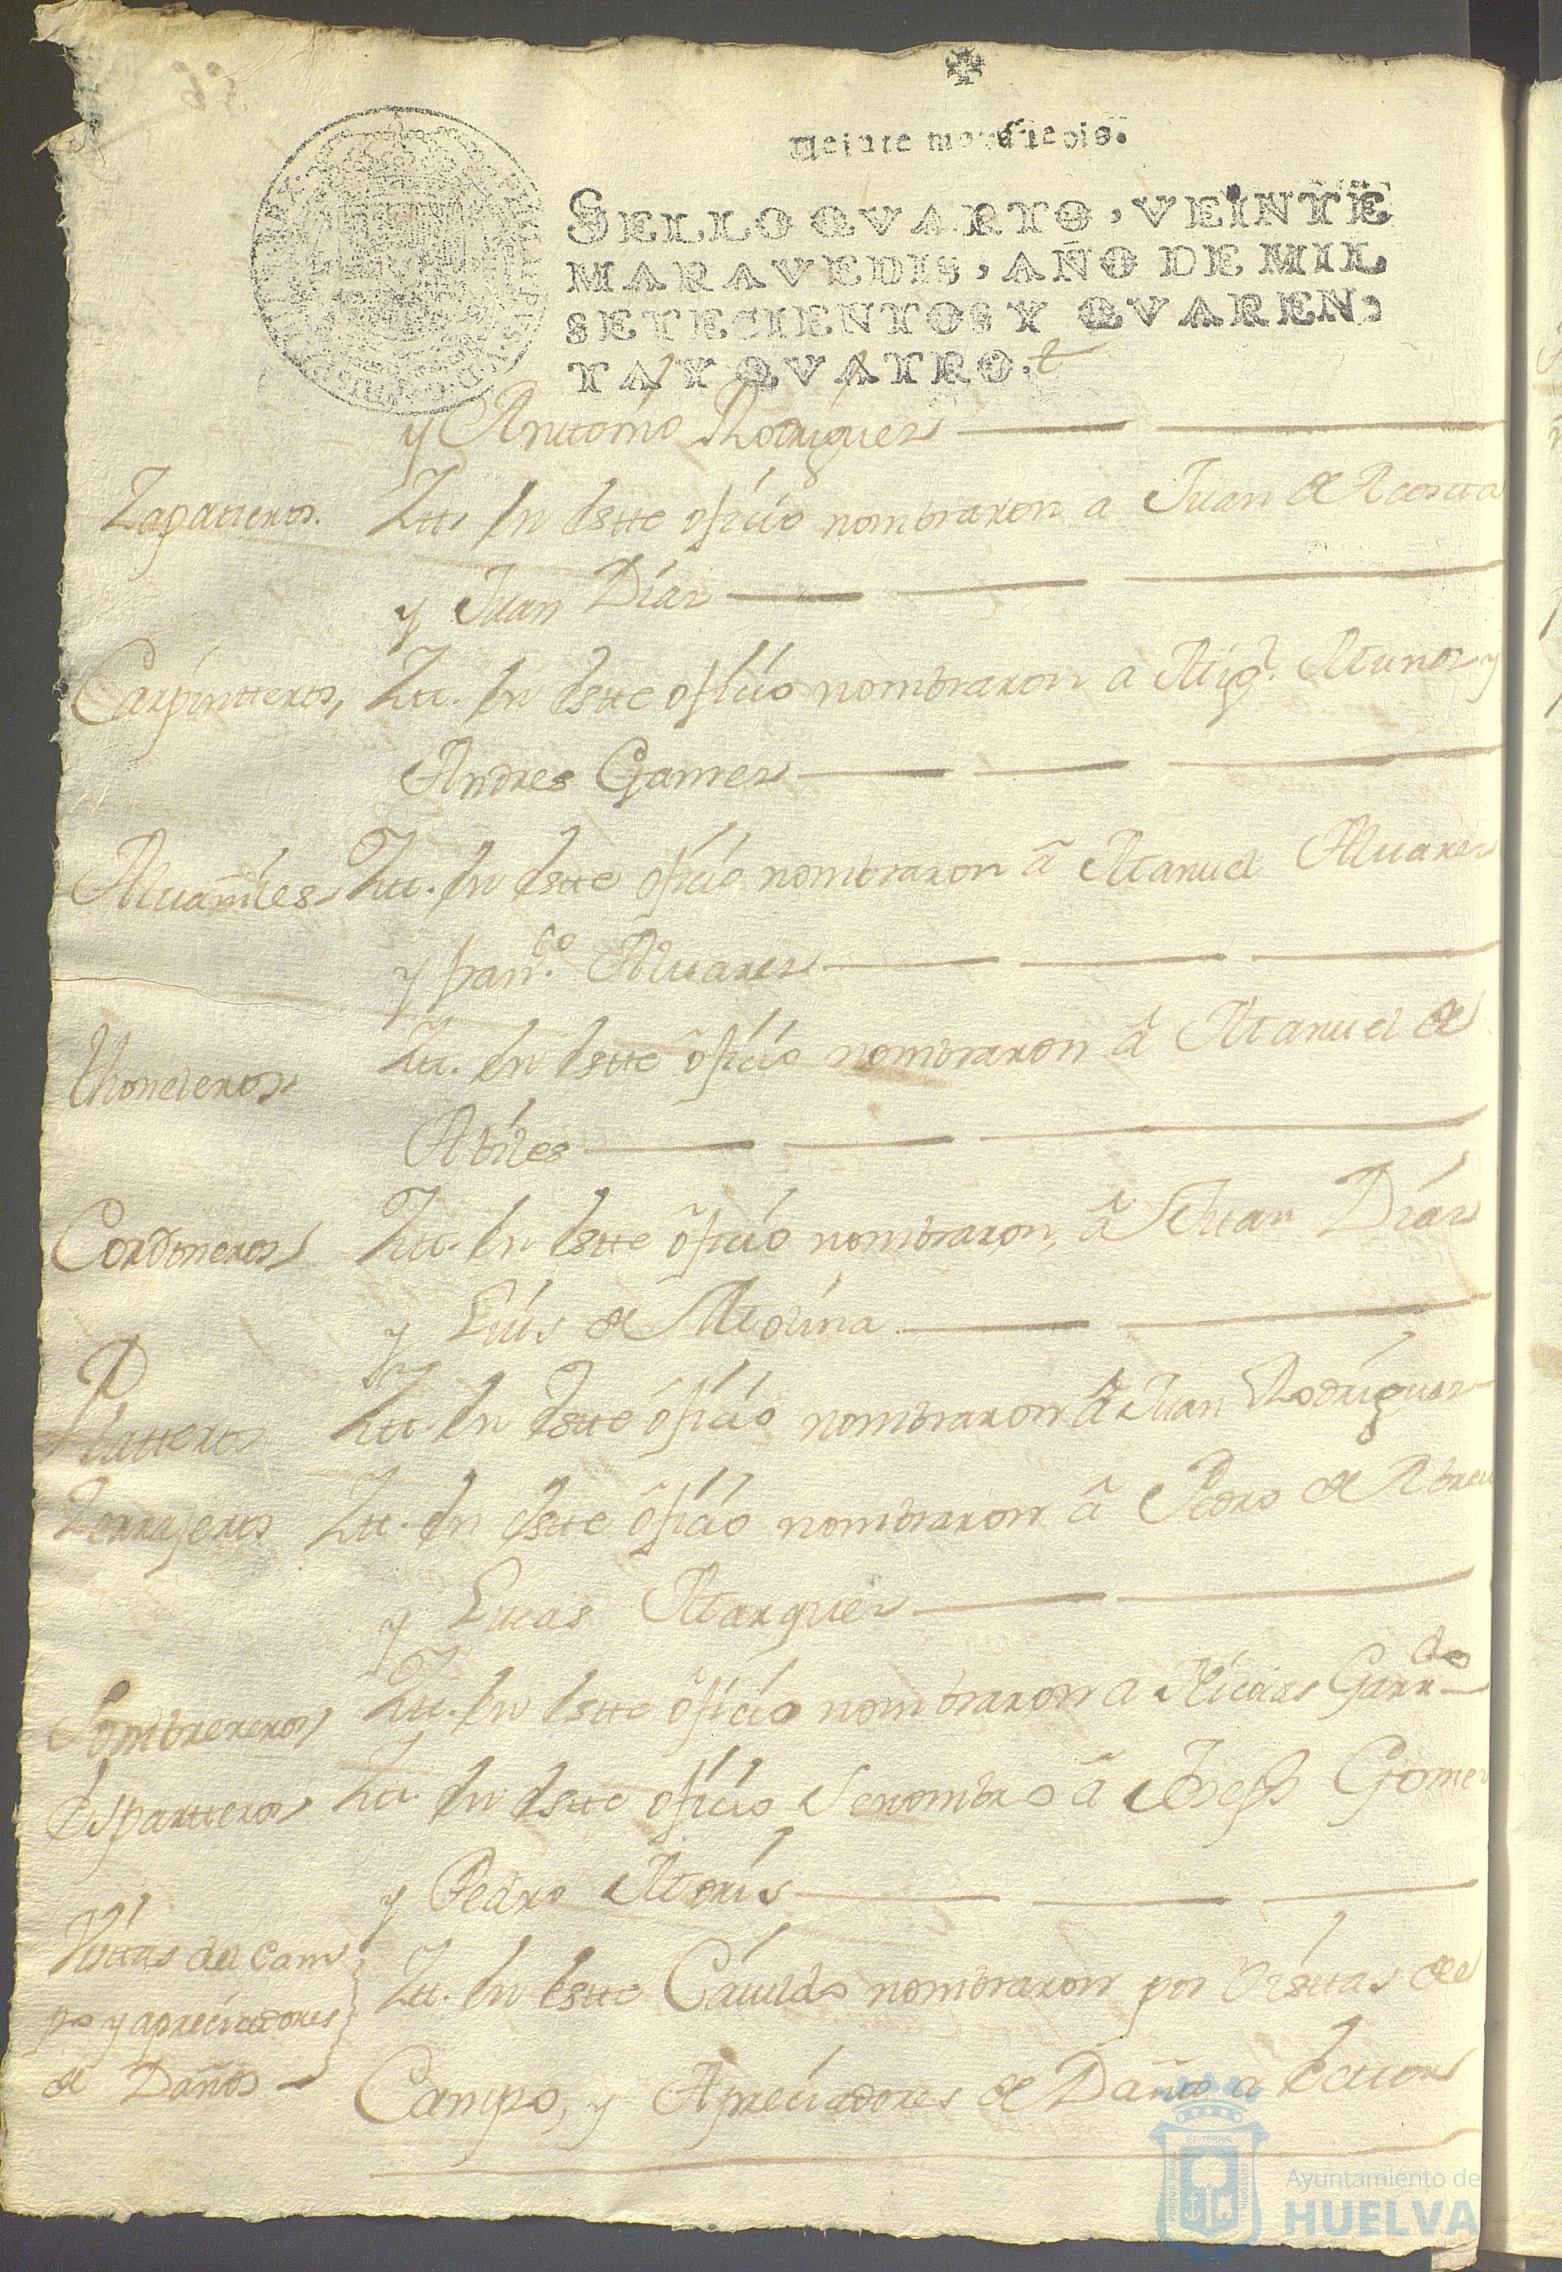 Veinte maravedis.
SELLO QVARTO, VEINTE
MARAVEDIS, AÑO DE MIL
SETECIENTOS Y QVAREN,
TA Y QVATRO.
y Anttonio Rodriguez
Zapatteros. Itt. en estte ofizio nombraron a Juan de Acostta
y Juan Diaz
Carpintteros, Itt. en estte ofizio nombraron a Migl. Munoz y
Andres Gamez
Aluamiles Itt. en estte ofizio nombraron â Manuel Aluarez
y fran.co Aluarez
Itt. en estte ofizio nombraron â Manuel de
Abiles
Cordoneros Itt. en estte ofizio nombraron, â Juan Diaz
y Luis de Molina
Platteros Itt. en estte ofizio nombraron â Juan Rodriguez
Zerrajeros Itt. en estte ofizio nombraron â Pedro de Abreu
y Lucas Marquez
Sombrereros Itt. en estte ofizio nombraron a Nicolas Garrdo
Espartteros Itt. en estte ofizio se nombro â Joseph Gomez
y Pedro
Visttas del Cam
po y apreciadores
de Daños
Itt. en estte Cauildo nombraron por Visttas de
Campo, y Apreciadores de Daño a
Ayuntamiento de
HUELVA